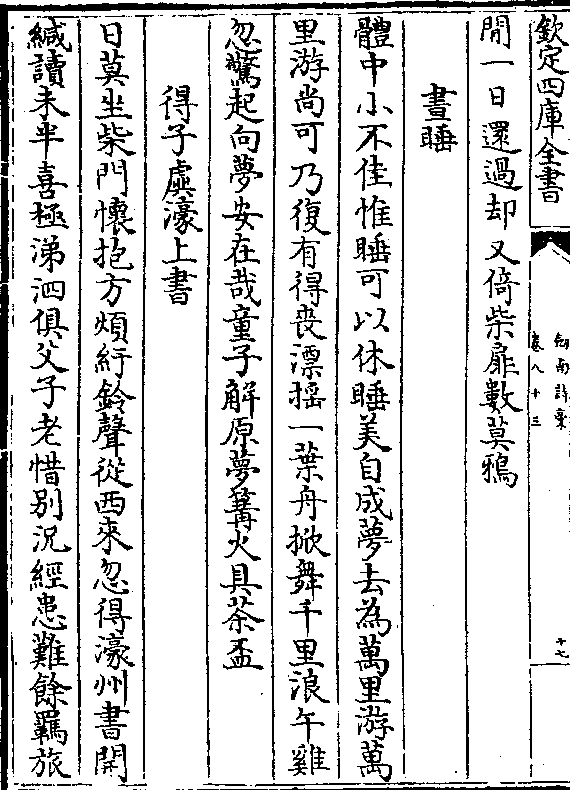 欽定四庫全書
劍南詩稾
卷八十三
十七
閒一日還過却又倚柴扉數莫鴉
晝睡
體中小不佳惟睡可以休睡美自成夢去為萬里游萬
里游尚可乃復有得喪漂搖一葉舟掀舞千里浪午雞
忽驚起向夢安在哉童子解原夢篝火具茶盃
得子虡濠上書
日莫坐柴門懷抱方煩紆鈴聲從西來忽得濠州書開
緘讀未半喜極涕泗俱父子老惜别況經患難餘羈旅